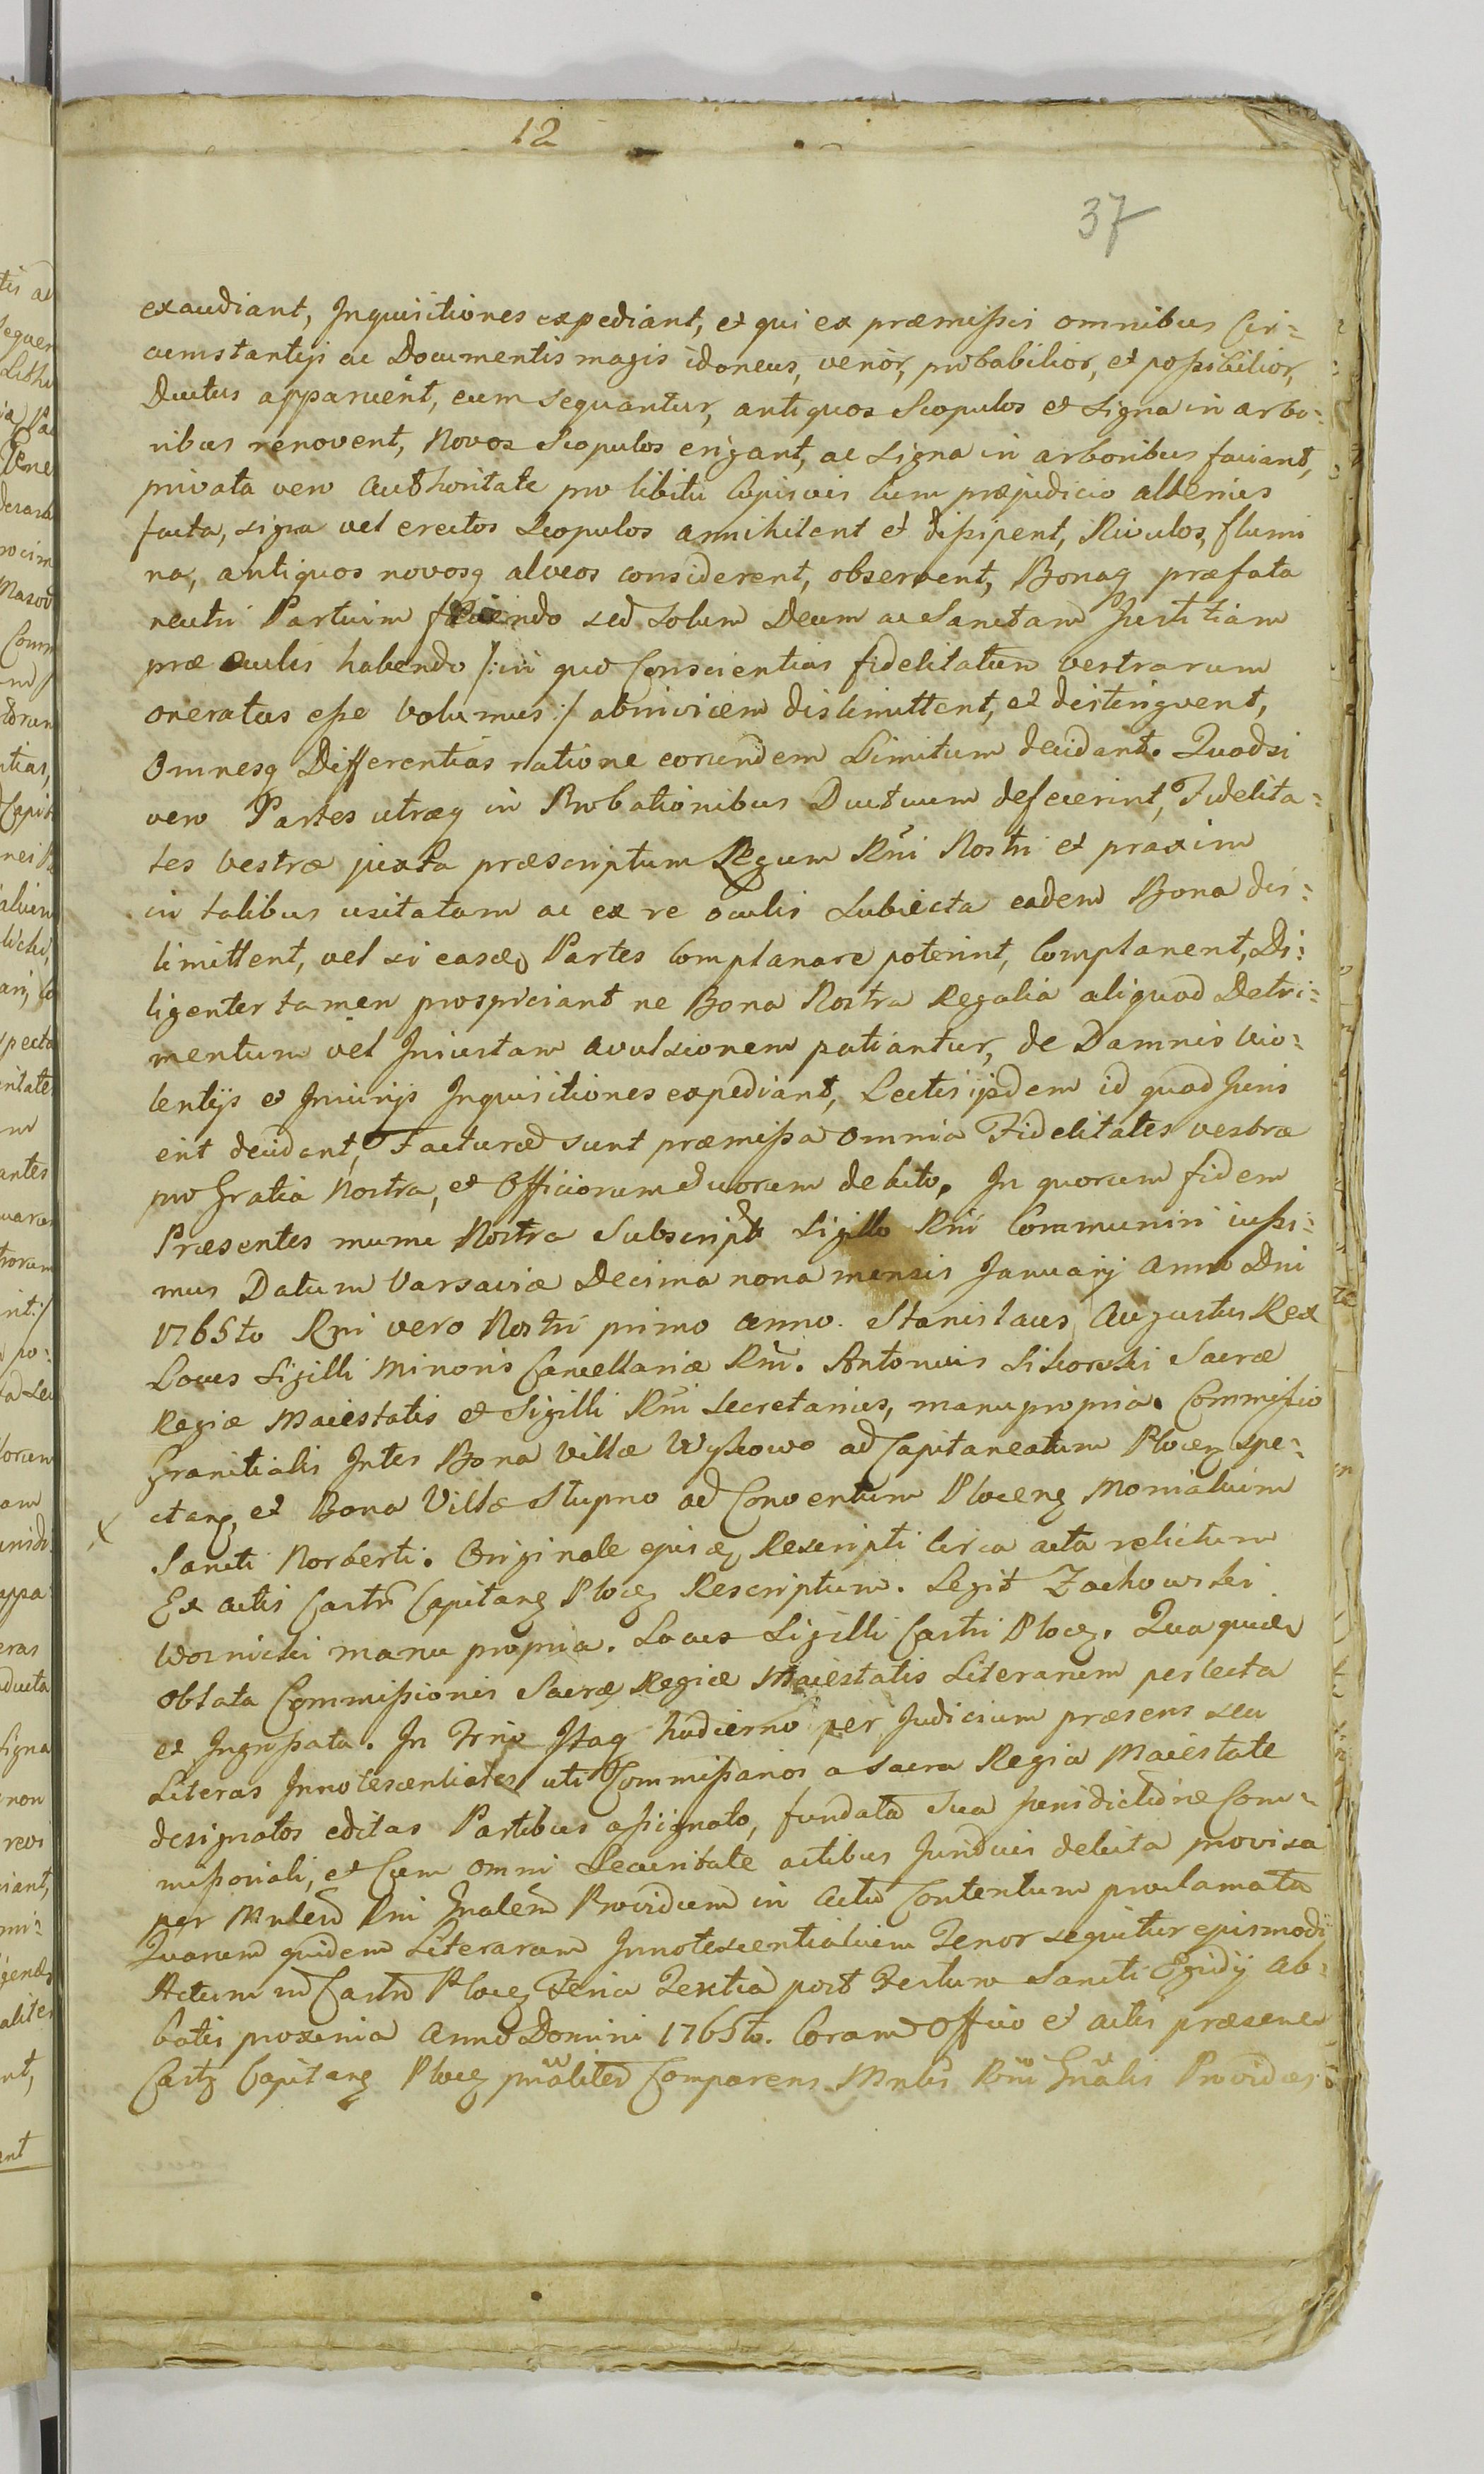 12
37
exaudiant, Inquisitiones expediant, et qui ex præmissis omnibus Cir=
cumstantijs ac Documentis magis idoneus, verior, probabilior, et possibilior,
Ductus apparuerit, eum sequantur, antiquos Scopulos et Signa in arbo=
ribus renovent, Novos Scopulos erigant, ac Signa in arboribus faciant,
privata vero Authoritate pro libitu cujusvis cum præjudicio alterius
facta, signa vel erectos Scopulos annihilent et dissipent, Rivulos, flumi
na, antiquos novosq alveos considerent, observent, Bonaq præfata
neutri Partium favendo sed solum Deum ac Sanctam Justitiam
præ oculis habendo /: in quo Conscientias fidelitatum vestrarum
oneratas esse volumus :/ abinvicem dislimittent, et distingvent,
Omnesq Differentias ratione eorundem Limitum decidant. Quodsi
vero Partes utræq in Probationibus Ductuum defecerint, Fidelita=
tes vestræ juxta præscriptum Legum Rni Nostri et praxim
in talibus usitatam ac ex re oculis Subiecta eadem Bona dis=
limittent, vel si easdem Partes Complanare poterint, Complanent, Di=
ligenter tamen prospiciant ne Bona Nostra Regalia aliquod Detri=
mentum vel Iniustam avulsionem patiantur, de Damnis vio=
lentijs et Iniurijs Inquisitiones expediant, Lectis ijsdem id quod Juris
erit decidant, Facturæ sunt præmissa omnia Fidelitates vestræ
pro Gratia Nostra, et Officiorum suorum debito, In quorum fidem
Præsentes manu Nostra Subscript Sigillo Rni Communiri iussi=
mus Datum Varsaviæ Decima nona mensis Januarij Anno Dni
1765to Rni vero Nostri primo anno. Stanislaus Augustus Rex
Locus Sigilli Minoris Cancellariæ Rni. Antonius Sikorski Sacræ
Regiæ Maiestatis et Sigilli Rni Secretarius, manu propria. Commissio
Granitialis Inter Bona Villæ Wykowo ad Capitaneatum Plocen spe=
ctan, et Bona Villæ Stupno ad Conventum Plocens Monialium
x
Sancti Norberti. Originale ejusdem Rescripti circa acta relictum
Ex actis Castri Capitan Plocen Rescriptum. Legit Zachowski
manu propria. Locus Sigilli Castri Plocen. Qua quidem
oblata Commissionis Sacræ Regiæ Maiestatis Literarum perlecta
et Ingrossata. In Trno Itaq hodierno per Judicium præsens seu
Literas Innotescentiales uti Commissarios a Sacra Regia Maiestate
designatos editas Partibus assignato, fundata Sua Jurisdictione Com=
missoriali, et Cum omni Securitate actibus Juridicis debita provisa
per Mnlem Rni Gnalem Providum in Actu Contentum proclamata
Quarum quidem Literarum Innotescentialium Tenor sequitur ejusmodi
Actum in Castro Plocen Feria Tertia post Festum Sancti Egidij Ab=
batis proxima Anno Domini 1765to. Coram Officio et actis præsen
Castr Capitan Plocen pnaliter Comparens Mnlis Rni Gnalis Providus